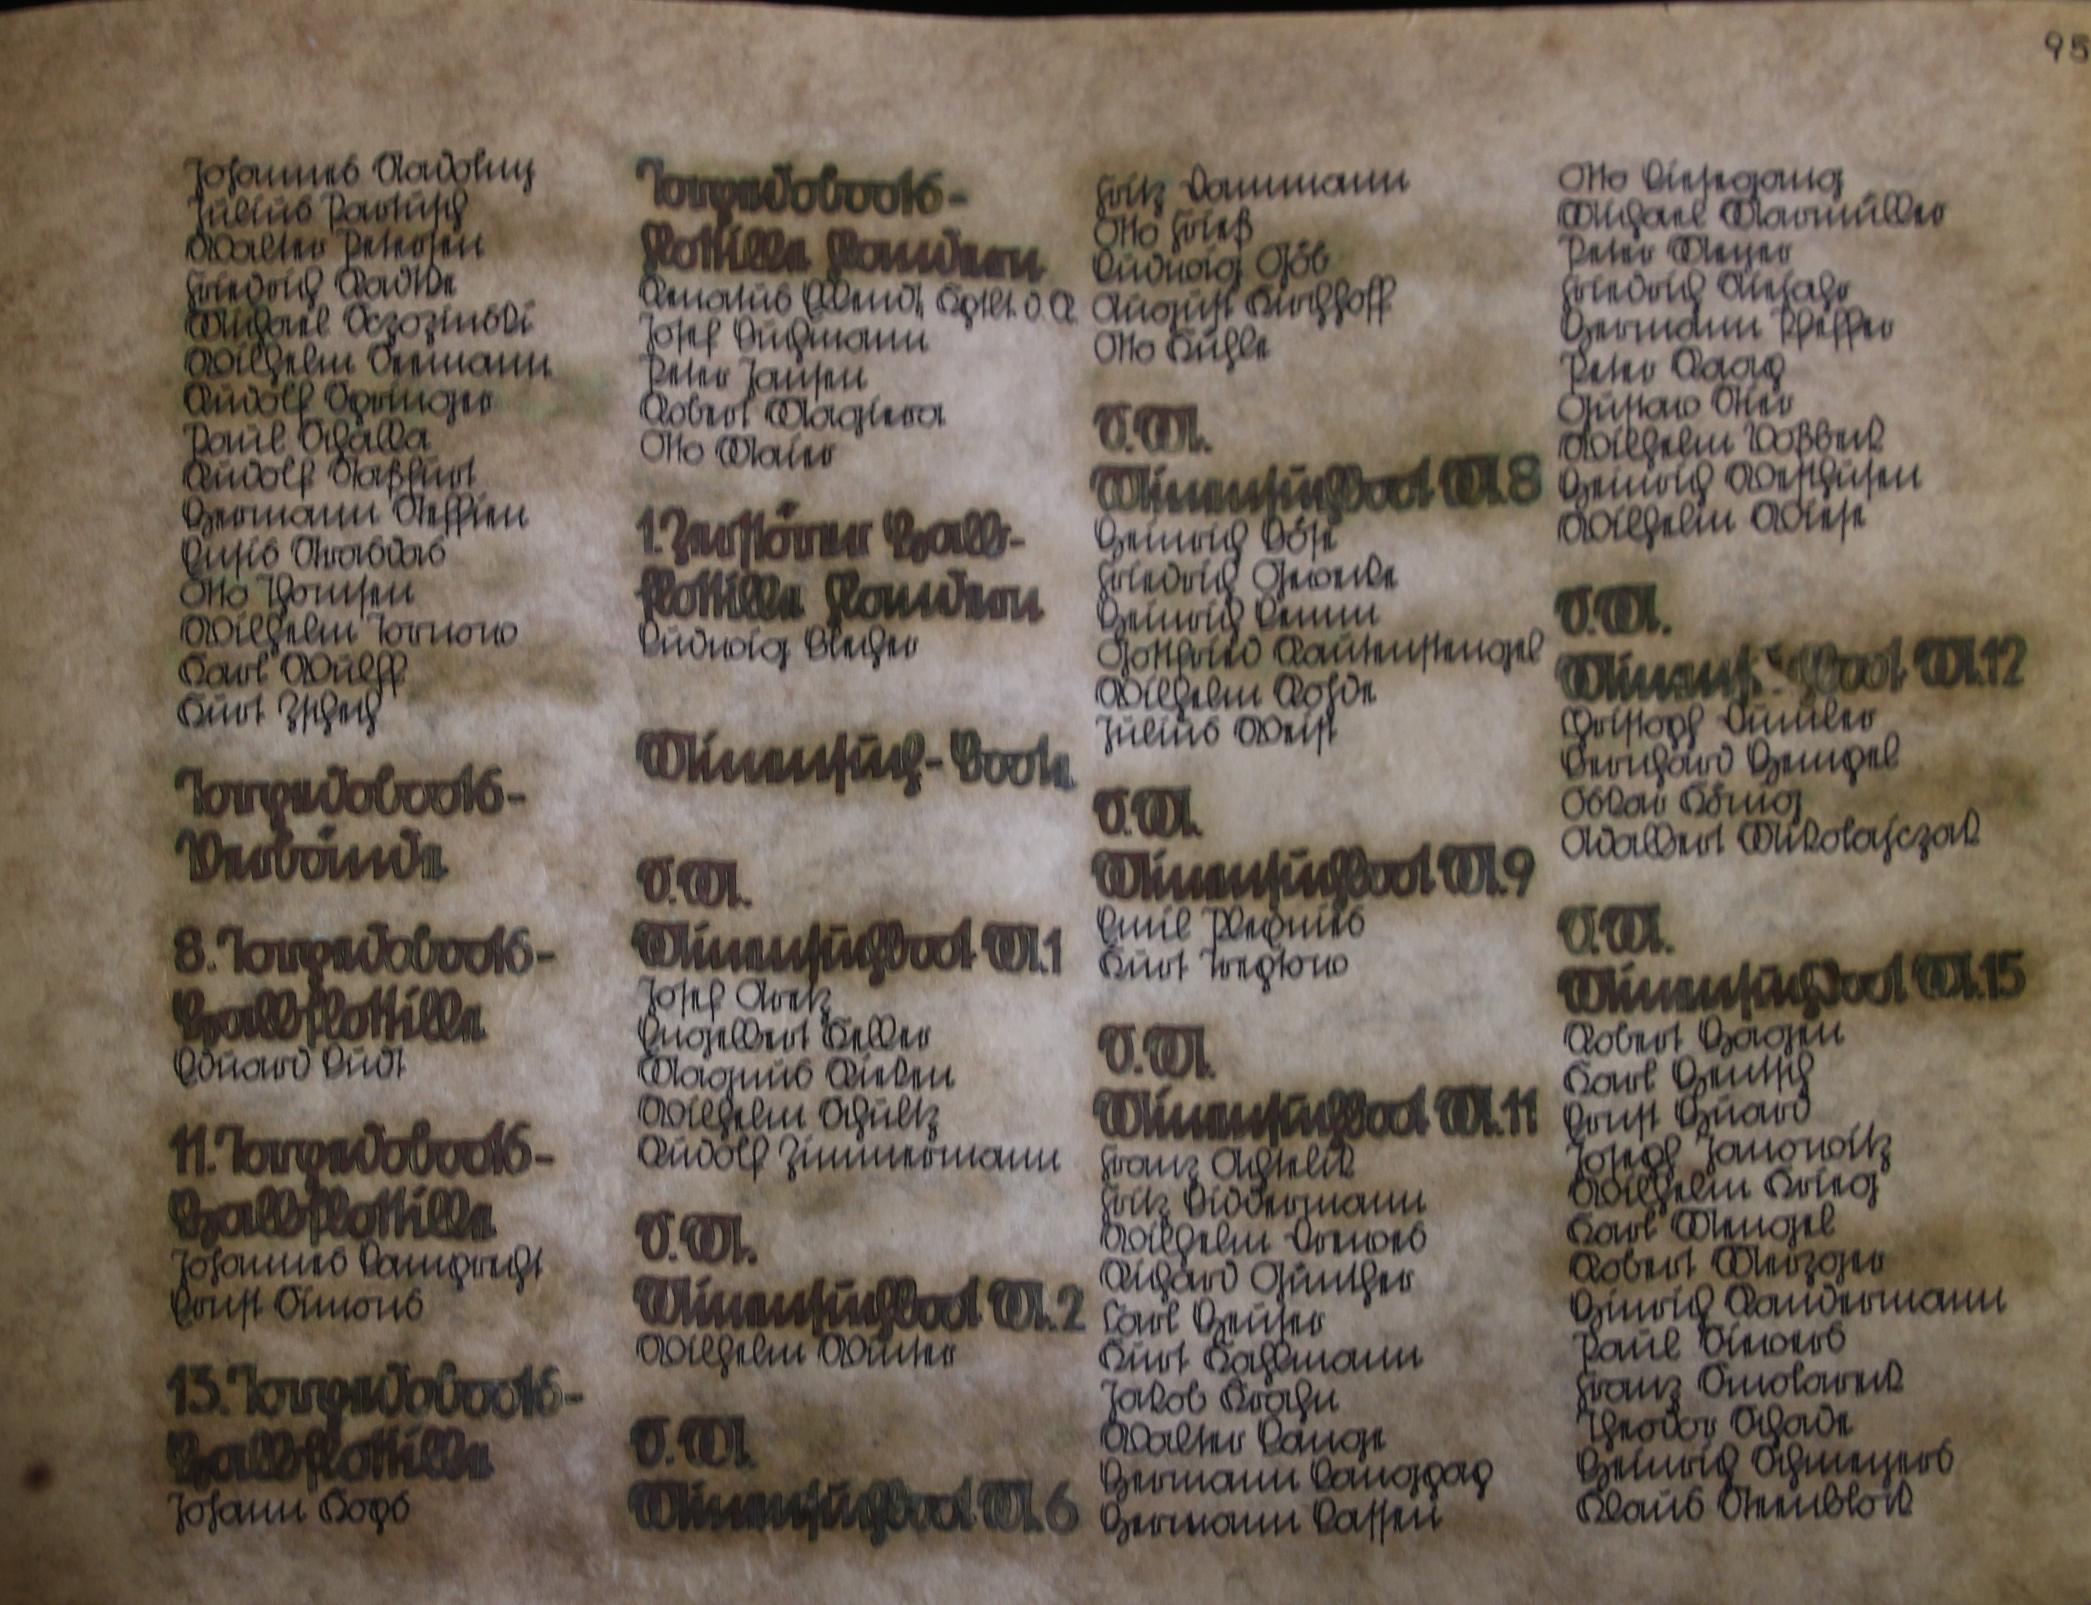 95
Johannes Nadolny
Julius Partusch
Walter Petersen
Friedrich Radtke
Michael
Wilhelm Seemann
Rudolf Springer
Paul Schalla
Rudolf Staßfurt
Hermann Steffien
Otto Thomsen
Wilhelm Tornow
Karl Wulff
Kurt Zschech
Torpedoboots-
Verbände
8. Torpedoboots-
Halbflottille
Eduard Lüdt
11. Torpedoboots-
Halbflottille
Johannes Lamprecht
Ernst Simons
13. Torpedoboots-
Halbflottille
Johann Kops
Torpedoboots-
flottille Flandern
Renatus Abendt, Kptlt. d. R.
Josef Buchmann
Peter Jansen
Robert Magiera
Otto Maier
1. Zerstörer Halb-
flottille Flandern
Ludwig Blecher
Minensuch-Boote
S.M.
Minensuchboot M.1
Josef Aretz
Engelbert Keller
Magnus Rieken
Wilhelm Schultz
Rudolf Zimmermann
S.M.
Minensuchboot M.2
Wilhelm Winter
S.M.
Minensuchboot M.6
Fritz Dammann
Otto Frieß
Ludwig Göb
August Kirchhoff
Otto Kühle
S.M.
Minensuchboot M.8
Heinrich Böse
Friedrich Gewecke
Heinrich Lemm
Gottfried Rautenstengel
Wilhelm Rohde
Julius Weist
S.M.
Minensuchboot M.9
Emil Plequies
Kurt Treptow
S.M.
Minensuchboot M.11
Franz Achtelik
Fritz Biddermann
Wilhelm Drewes
Richard Günther
Carl Heuser
Kurt Kahlmann
Jakob Krahn
Walter Lange
Hermann Langpap
Hermann Lassen
Otto Liesegang
Michael Marmüller
Peter Meyer
Friedrich Niejahr
Hermann Pfeffer
Peter Raap
Gustav Stier
Wilhelm Voßbeck
Heinrich Westhusen
Wilhelm Wiese
S.M.
Minens.-Boot M.12
Christoph Bümler
Bernhard Hempel
Oskar König
Adalbert Mikolajczak
S.M.
Minensuchboot M.15
Robert Hagen
Karl Hentsch
Ernst Huard
Joseph Janowitz
Wilhelm Krieg
Karl Mengel
Robert Merzger
Hinrich Randermann
Paul Sievers
Franz Smolareck
Theodor Schade
Heinrich Schmeyers
Klaus Steenblock